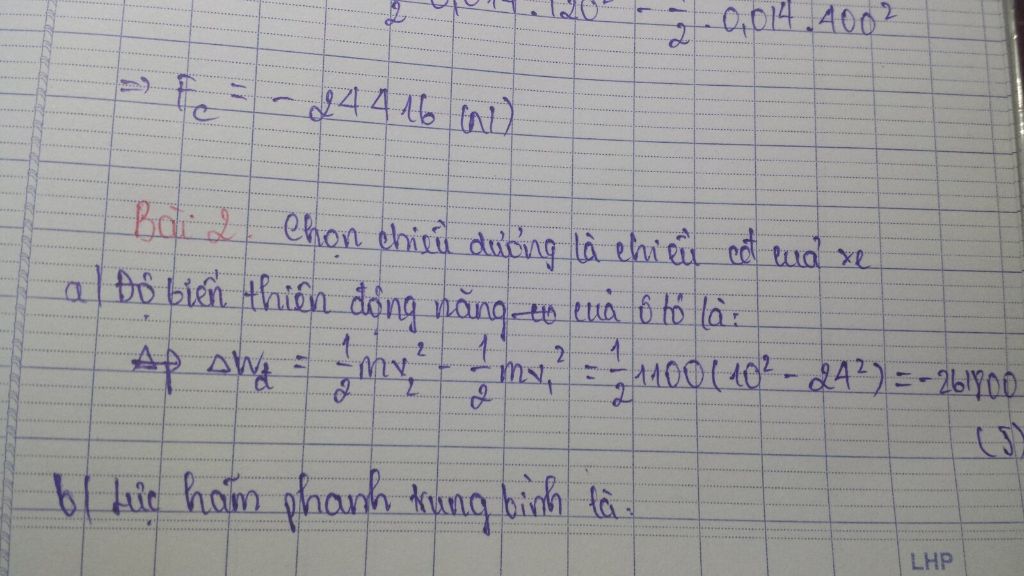 1/2 . 0,014 . 120² - 1/2 . 0,014 . 400²
=> Fc = - 24416 (N)
Bài 2. Chọn chiều dương là chiều cđ của xe
a/ Độ biến thiên động năng của ô tô là:
Ap ΔWđ = 1/2 mv₂² - 1/2 mv₁² = 1/2 1100 (10² - 24²) = - 261800
(J)
b/ Lực hãm phanh trung bình là.
LHP